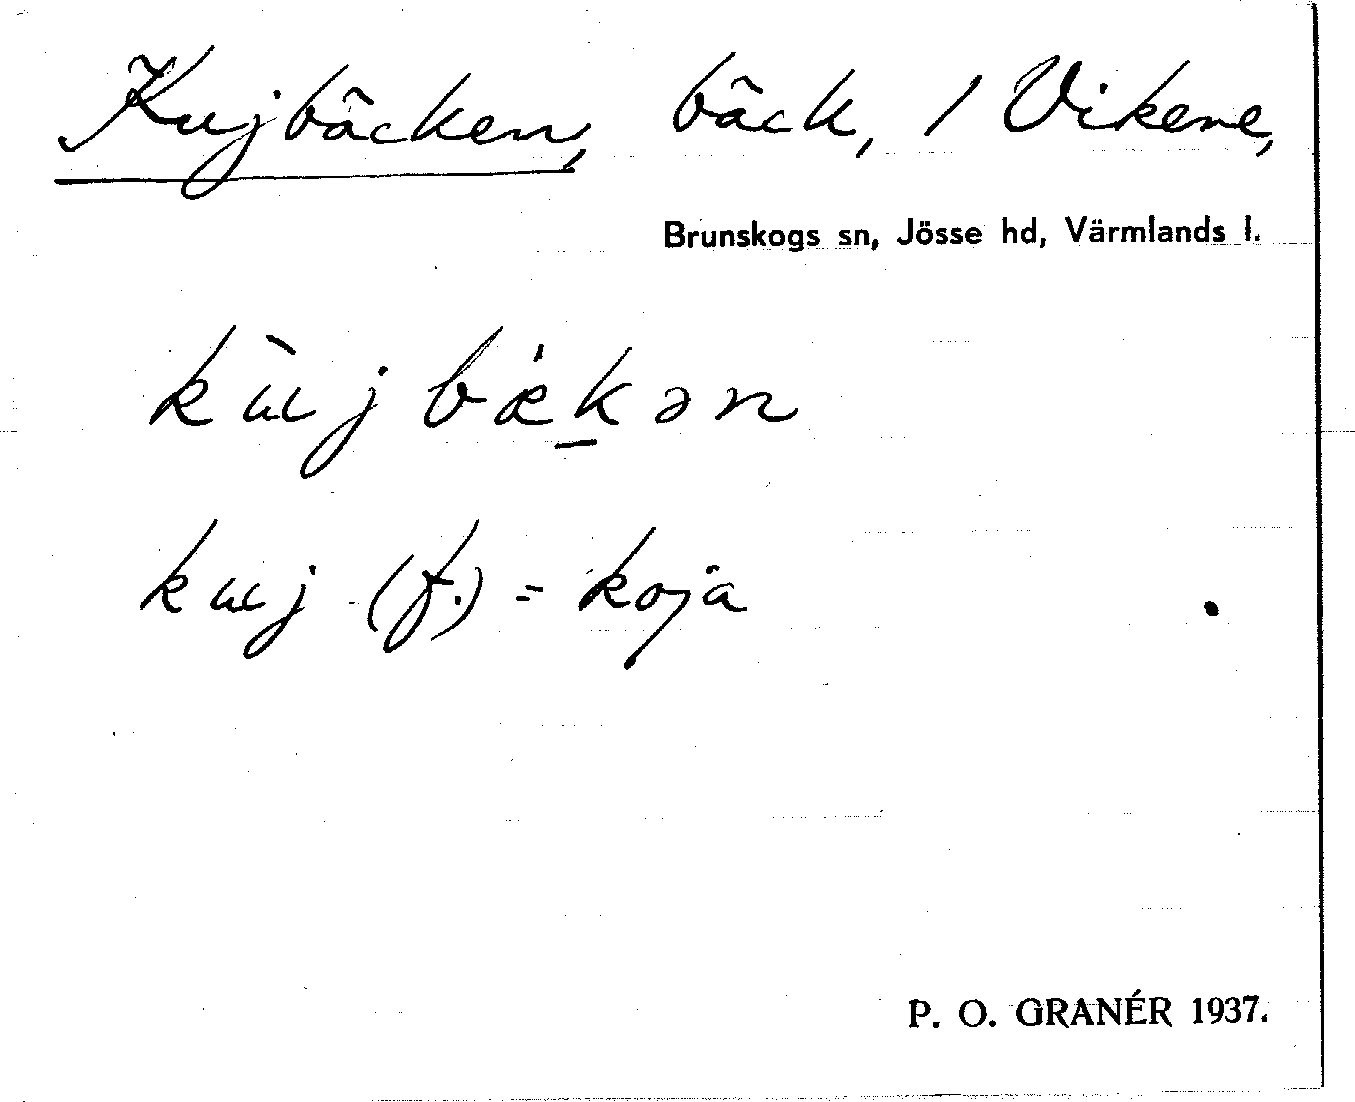 Kujbäcken, bäck, / Vikene,
Brunskogs sn, Jösse hd, Värmlands l.
kɯ̀jbæ̇k̲ən
kɯj (f.) = koja
P. O. GRANÉR 1937.